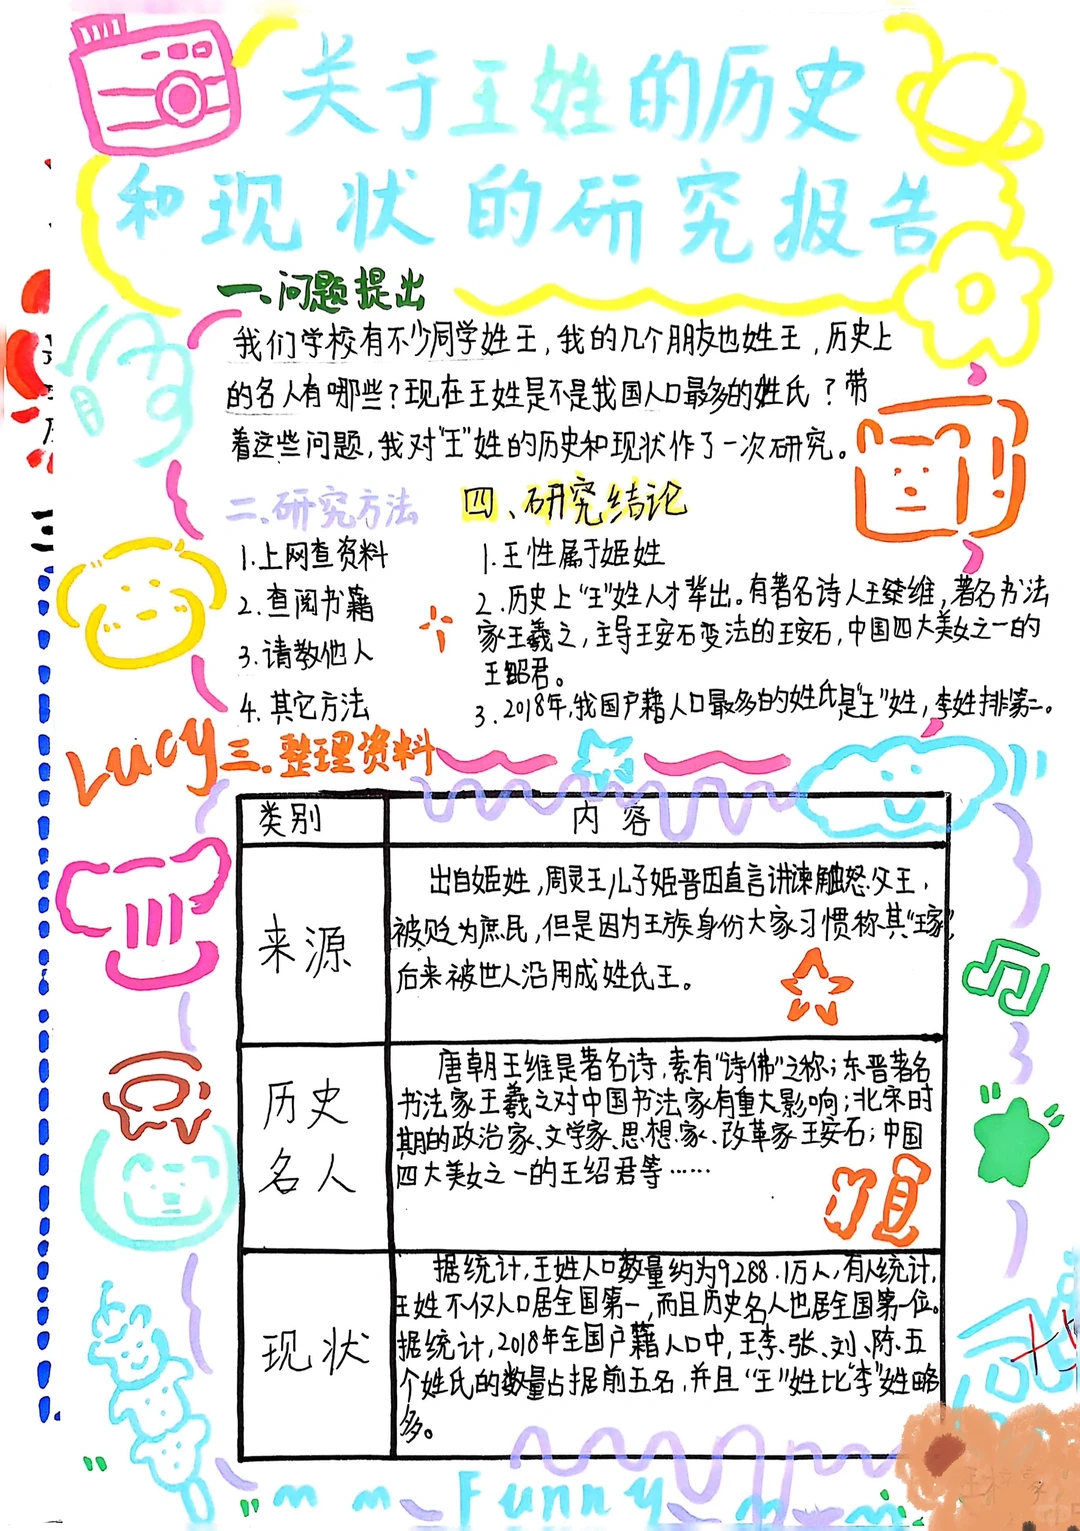 关于王姓的历史
和现状的研究报告
一、问题提出
我们学校有不少同学姓王，我的几个朋友也姓王，历史上
的名人有哪些？现在王姓是不是我国人口最多的姓氏？带
着这些问题，我对“王”姓的历史和现状作了一次研究。
二、研究方法
1.上网查资料
2.查阅书籍
3.请教他人
4.其它方法
四、研究结论
1.王性属于姬姓
2.历史上“王”姓人才辈出。有著名诗人王维，著名书法
家王羲之，主导王安石变法的王安石，中国四大美女之一的
王昭君。
3.2018年，我国户籍人口最多的姓氏是“王”姓，李姓排第二。
Lucy
三.整理资料
类别
内容
来源
出自姬姓，周灵王儿子姬晋因直言讲谏触怒父王，
被贬为庶民，但是因为王族身份大家习惯称其“王家”，
后来被世人沿用成姓氏王。
历史
名人
唐朝王维是著名诗，素有“诗佛”之称；东晋著名
书法家王羲之对中国书法家有重大影响；北宋时
期的政治家、文学家、思想家、改革家王安石；中国
四大美女之一的王绍君等……
现状
据统计，王姓人口数量约为9288.1万人，有人统计，
王姓不仅人口居全国第一，而且历史名人也居全国第一位。
据统计，2018年全国户籍人口中，王、李、张、刘、陈、五
个姓氏的数量占据前五名，并且“王”姓比“李”姓略
多。
Funny